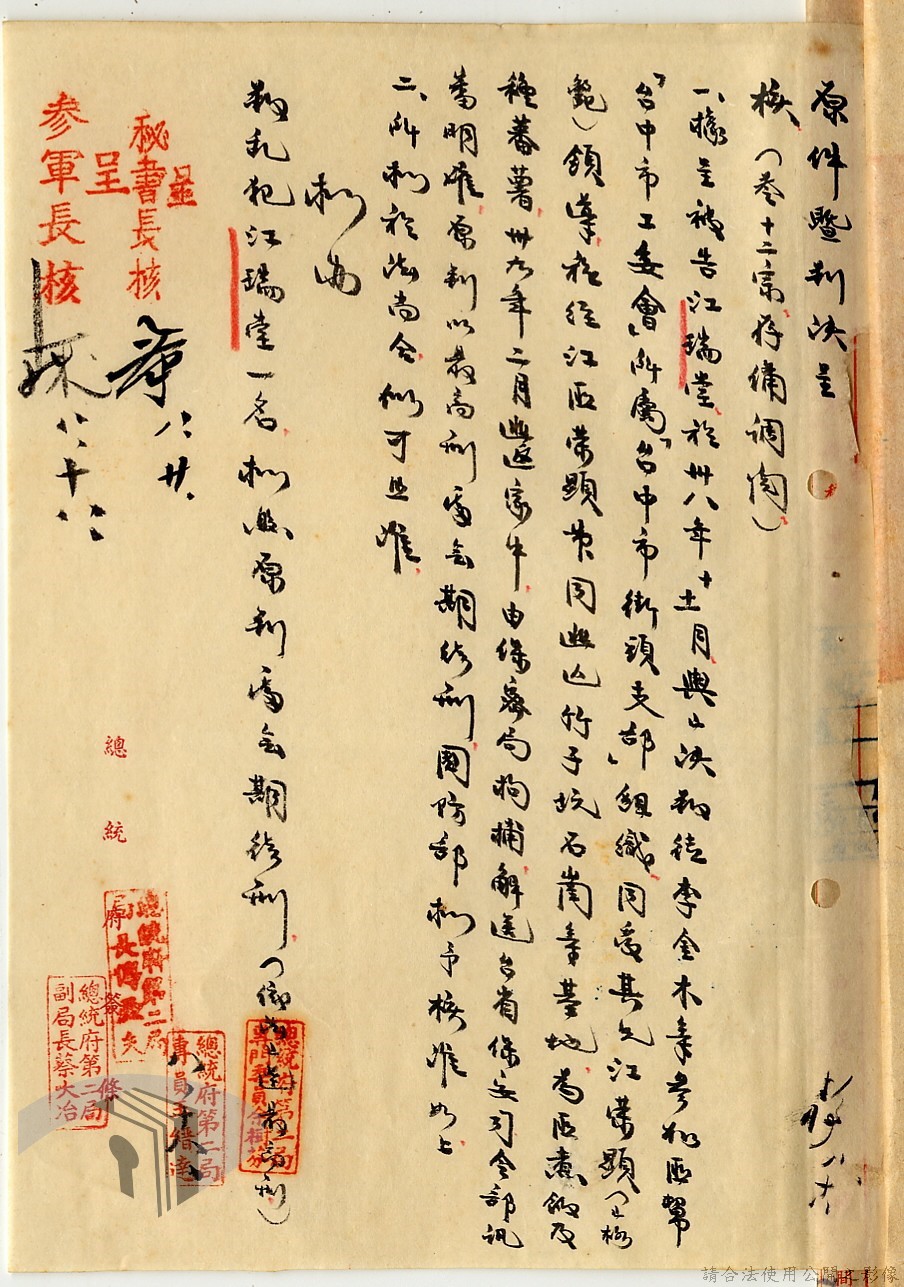 原件暨判決呈
核（卷十二宗存備調閱）
一、據呈被告江瑞堂於卅八年十二月與已決叛徒李金木等參加匪幫
「台中市工委會」所屬「台中市街頭支部」組織同受其兄江榮顯（已槍
斃）領導在從江匪榮顯等同逃竹子坑石崗等基地為匪煮飯及
種蕃薯卅九年二月逃返家中由保密局拘捕解送台省保安司令部訊
審明確原判以最高刑處無期徒刑國防部擬予核准如上
二、所擬於法尚合擬可照准
擬曲
叛乱犯江瑞堂一名擬照原判處無期徒刑（最高刑）
呈
秘書長核
八、廿
呈
參軍長核
八、十八
總統府簽條
總統府第二局
總統府第二局副局長蔡大冶
總統府第二局專員
請合法使用公開之影像